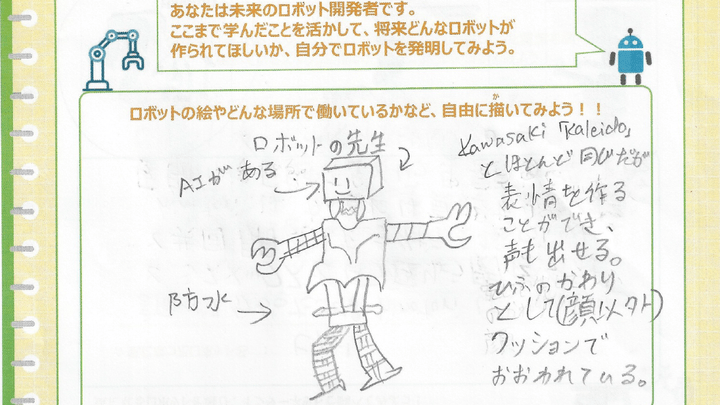 あなたは未来のロボット開発者です。
ここまで学んだことを活かして、将来どんなロボットが
作られてほしいか、自分でロボットを発明してみよう。
ロボットの絵やどんな場所で働いているかなど、自由に描いてみよう！！
か
ロボットの先生
AIがある
防水
Kawasaki「Kaleido」
とほとんど同じだが
表情を作る
ことができ、
声も出せる。
ひふのかわり
として(顔以外)
クッションで
おおわれている。